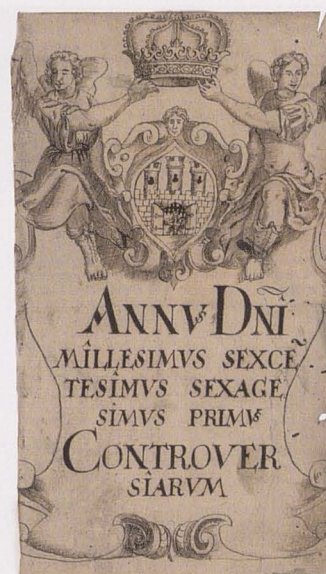 ANNVS DN̄I
MILLESIMVS SEXCE̅
TESIMVS SEXAGE
SIMVS PRIMVS
CONTROVER
SIARVM